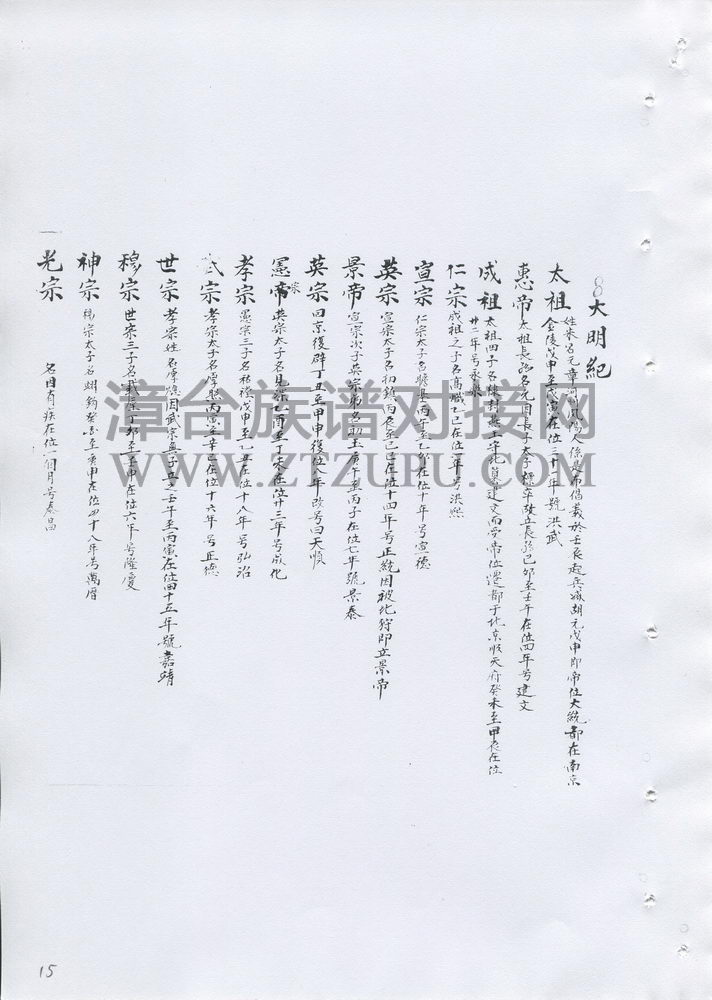 8大明紀
太祖 姓朱名元章 人 倡義於壬辰起兵滅胡元戊申即帝位大統都在南京
金陵戊申至戊寅在位三十一年號洪武
惠帝 太祖長孫名允因長子太子標卒改立長孫己卯至壬午在位四年号建文
成祖 太祖四子名棣封燕王守北 建文而受帝位遷都于北京順天府癸未至甲辰在位
廿二年号永樂
仁宗 成祖之子名高 乙巳在位一年号洪熙
宣宗 仁宗太子名瞻基丙午至乙卯在位十年号宣德
英宗 宣宗太子名初鎮丙辰至己巳在位十四年号正統因被北狩即立景帝
景帝 宣宗次子英宗弟名 玉庚午至丙子在位七年號景泰
英宗 回京復辟丁丑至甲申復位八年改号曰天順
憲帝宗 英宗太子名見深乙酉至丁未在位廿三年号成化
孝宗 憲宗三子名祐樘戊申至乙丑在位十八年号弘治
武宗 孝宗太子名厚照丙寅至辛巳在位十六年号正德
世宗 孝宗姪名厚熜因武宗無子立之壬午至丙寅在位四十五年號嘉靖
穆宗 世宗三子名載 丁卯至壬申在位六年号隆慶
神宗 穆宗太子名翊鈞癸酉至庚申在位四十八年号萬曆
光宗 名 因有疾在位一個月号泰昌
15
漳台族谱对接网
WWW.ZTZUPU.COM